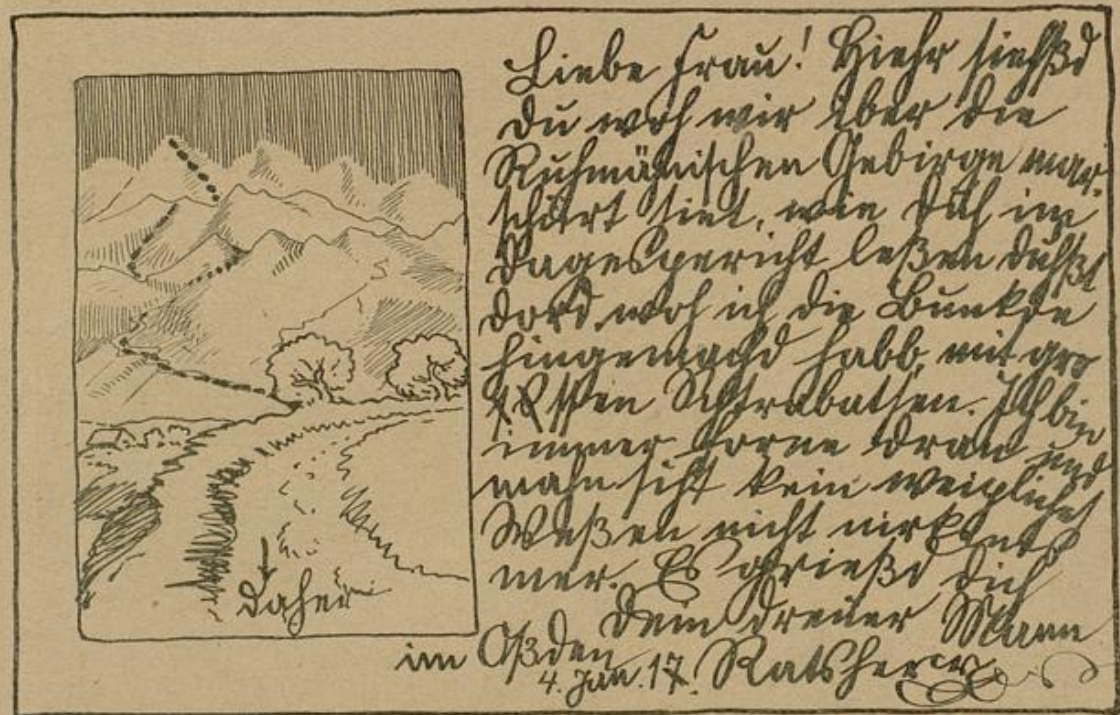 Liebe Frau! Hiehr siehßd
Du woh wir über die
Ruhmänischen Gebirge mar-
schürt sint, wie Däs im
Dagespericht leßen duhßt
dord, woh ich die Bunkde
hingemachd habb, mit gro
ssen Schtrabatsen. Ich bin
immer forne dran und
mahn siht kein weipliches
Weßen nicht nirkents
mer. Es grießd Dich
Dein dreuer Mann
im Oßden Ratsherr
4. Jan. 17.
daher